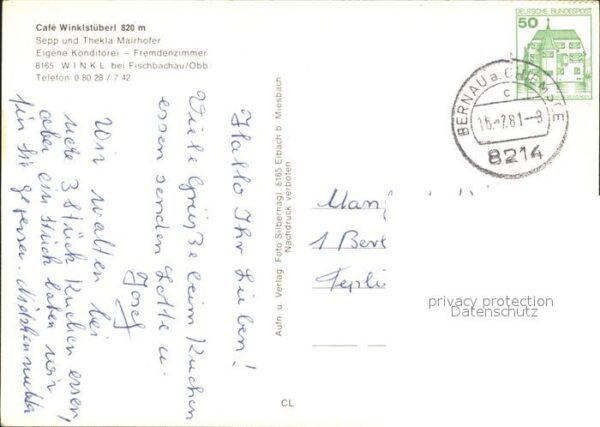 Café Winklstüberl 820 m
Sepp und Thekla Mairhofer
Eigene Konditorei – Fremdenzimmer
8165 WINKL bei Fischbachau/Obb.
Telefon 0 80 28 / 7 42
Hallo Ihr Lieben!
Viele Grüße beim Kuchen
essen senden Lotte u.
Josef
Wir wollten bei
3 Stück Kuchen essen,
aber ein Stück haben wir
für Sie gegessen.
Aufn. u. Verlag: Foto Silbernagl 8165 Elbach b. Miesbach
Nachdruck verboten
CL
50
DEUTSCHE BUNDESPOST
BERNAU a. CHIEMSEE
c
8214
1 Berl
privacy protection
Datenschutz